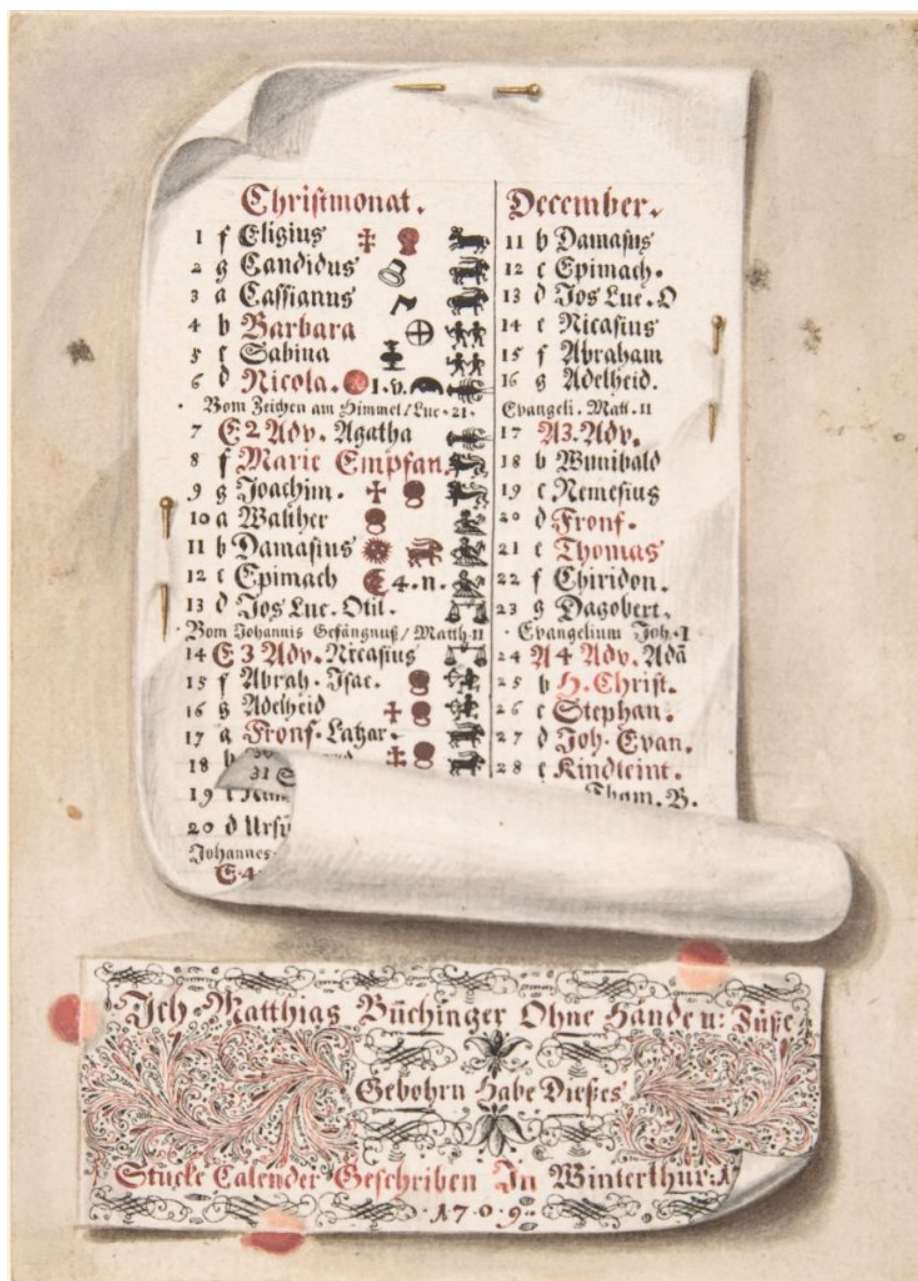 Christmonat.
1 f Eligius
2 g Candidus
3 a Cassianus
4 b Barbara
5 c Sabina
6 d Nicola. 1. v.
Vom Zeichen am Himmel / Luc. 21.
7 E 2 Adv. Agatha
8 f Marie Empfan.
9 g Joachim.
10 a Walther
11 b Damasius
12 c Epimach 4. n.
13 d Jos Luc. Otil.
Vom Johannis Gefängnuß / Matth. 11
14 E 3 Adv. Nicasius
15 f Abrah. Isac.
16 g Adelheid
17 a Fronf. Latzar.
18 b
31 S
19 c
20 d Ursi
Johannes
E. 4.
December.
11 b Damasus
12 c Epimach.
13 d Jos Luc. O
14 e Nicasius
15 f Abraham
16 g Adelheid.
Evangeli. Matt. 11
17 A 3. Adv.
18 b Wunibald
19 c Nemesius
20 d Fronf.
21 e Thomas
22 f Chiridon.
23 g Dagobert.
Evangelium Joh. 1
24 A 4 Adv. Adā
25 b H. Christ.
26 c Stephan.
27 d Joh. Evan.
28 e Kindleint.
Thom. B.
Ich Matthias Büchinger Ohne Hände u: Füße
Gebohrn Habe Dießes
Stucke Calender Geschriben In Winterthur: 17
1709